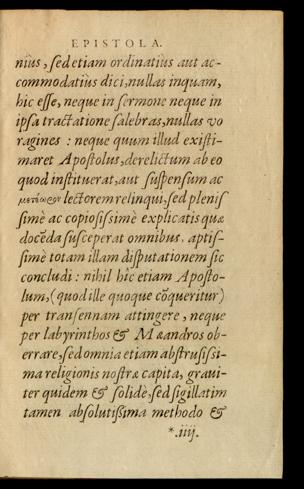 EPISTOLA.
nius, sed etiam ordinatiùs aut ac-
commodatiùs dici, nullas inquam,
hîc esse, neque in sermone neque in
ipsa tractatione salebras, nullas vo
ragines : neque quum illud existi-
maret Apostolus, derelictum ab eo
quod instituerat, aut suspensum ac
μετέωρον lectorem relinqui, sed plenis
simè ac copiosissimè explicatis quæ
docēda susceperat omnibus, aptis-
simè totam illam disputationem sic
concludi : nihil hîc etiam Aposto-
lum, (quod ille quoque cōqueritur)
per transennam attingere, neque
per labyrinthos & Mæandros ob-
errare, sed omnia etiam abstrusissi-
ma religionis nostræ capita, gravi-
ter quidem & solidè, sed sigillatim
tamen absolutissima methodo &
*.iiij.